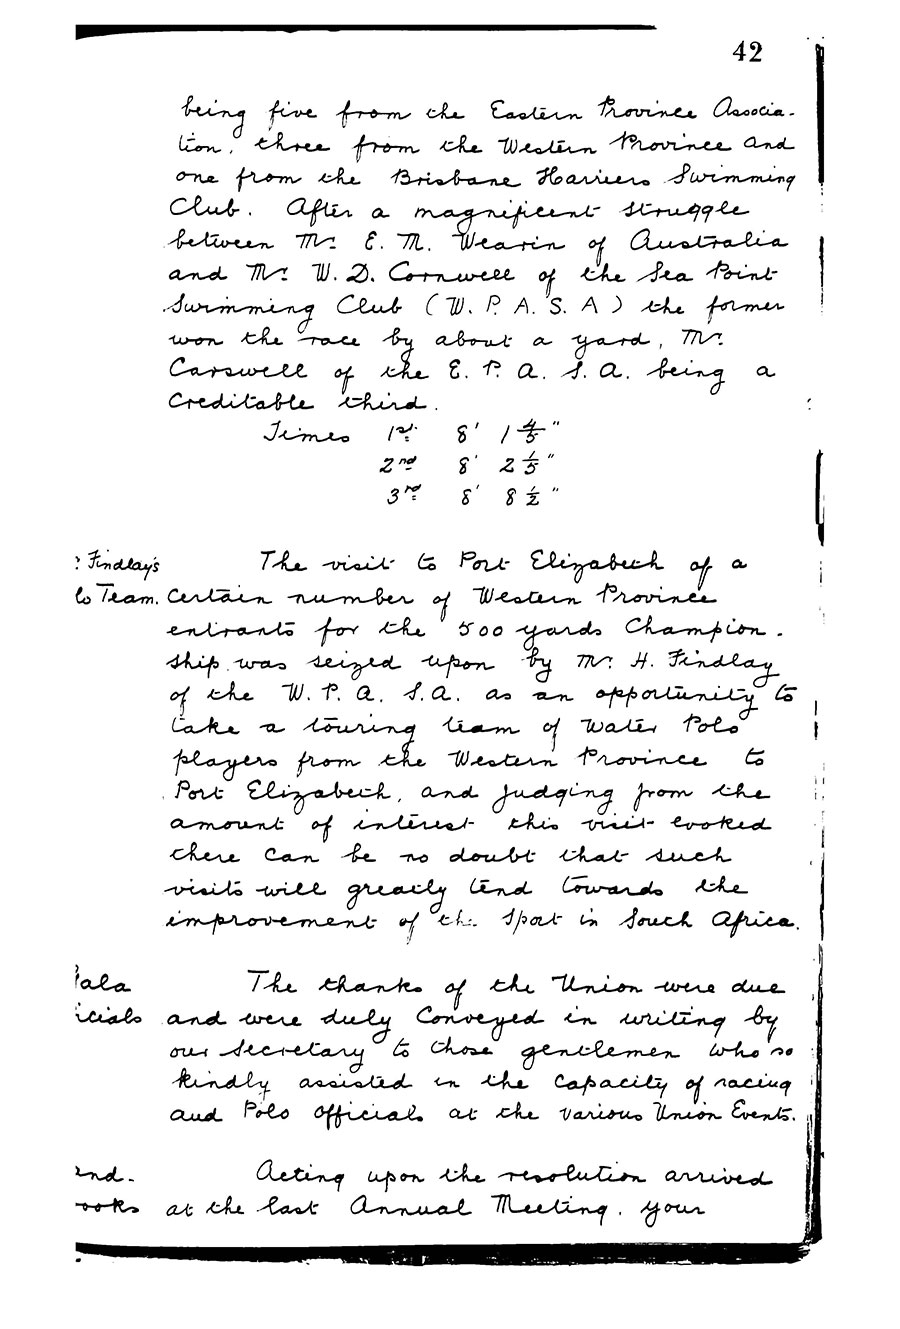 42
being five from the Eastern Province Associa-
tion, three from the Western Province and
one from the Brisbane Harriers Swimming
Club. After a magnificent struggle
between Mr. E. M. Wearin of Australia
and Mr. W. D. Cornwell of the Sea Point
Swimming Club (W. P. A. S. A) the former
won the race by about a yard, Mr.
Carswell of the E. P. A. S. A. being a
creditable third.
Times 1st 8' 1 4/5"
2nd 8' 2 1/5"
3rd 8' 8 1/2"
Findlay's The visit to Port Elizabeth of a
lo Team. certain number of Western Province
entrants for the 500 yards Champion-
ship was seized upon by Mr. H. Findlay
of the W. P. A. S. A. as an opportunity to
take a touring team of Water Polo
players from the Western Province to
Port Elizabeth, and judging from the
amount of interest this visit evoked
there can be no doubt that such
visits will greatly tend towards the
improvement of the Sport in South Africa.
ala The thanks of the Union were due
icials and were duly conveyed in writing by
our Secretary to those gentlemen who so
kindly assisted in the capacity of racing
and Polo officials at the various Union Events.
nd- Acting upon the resolution arrived
ooks at the last Annual Meeting, your